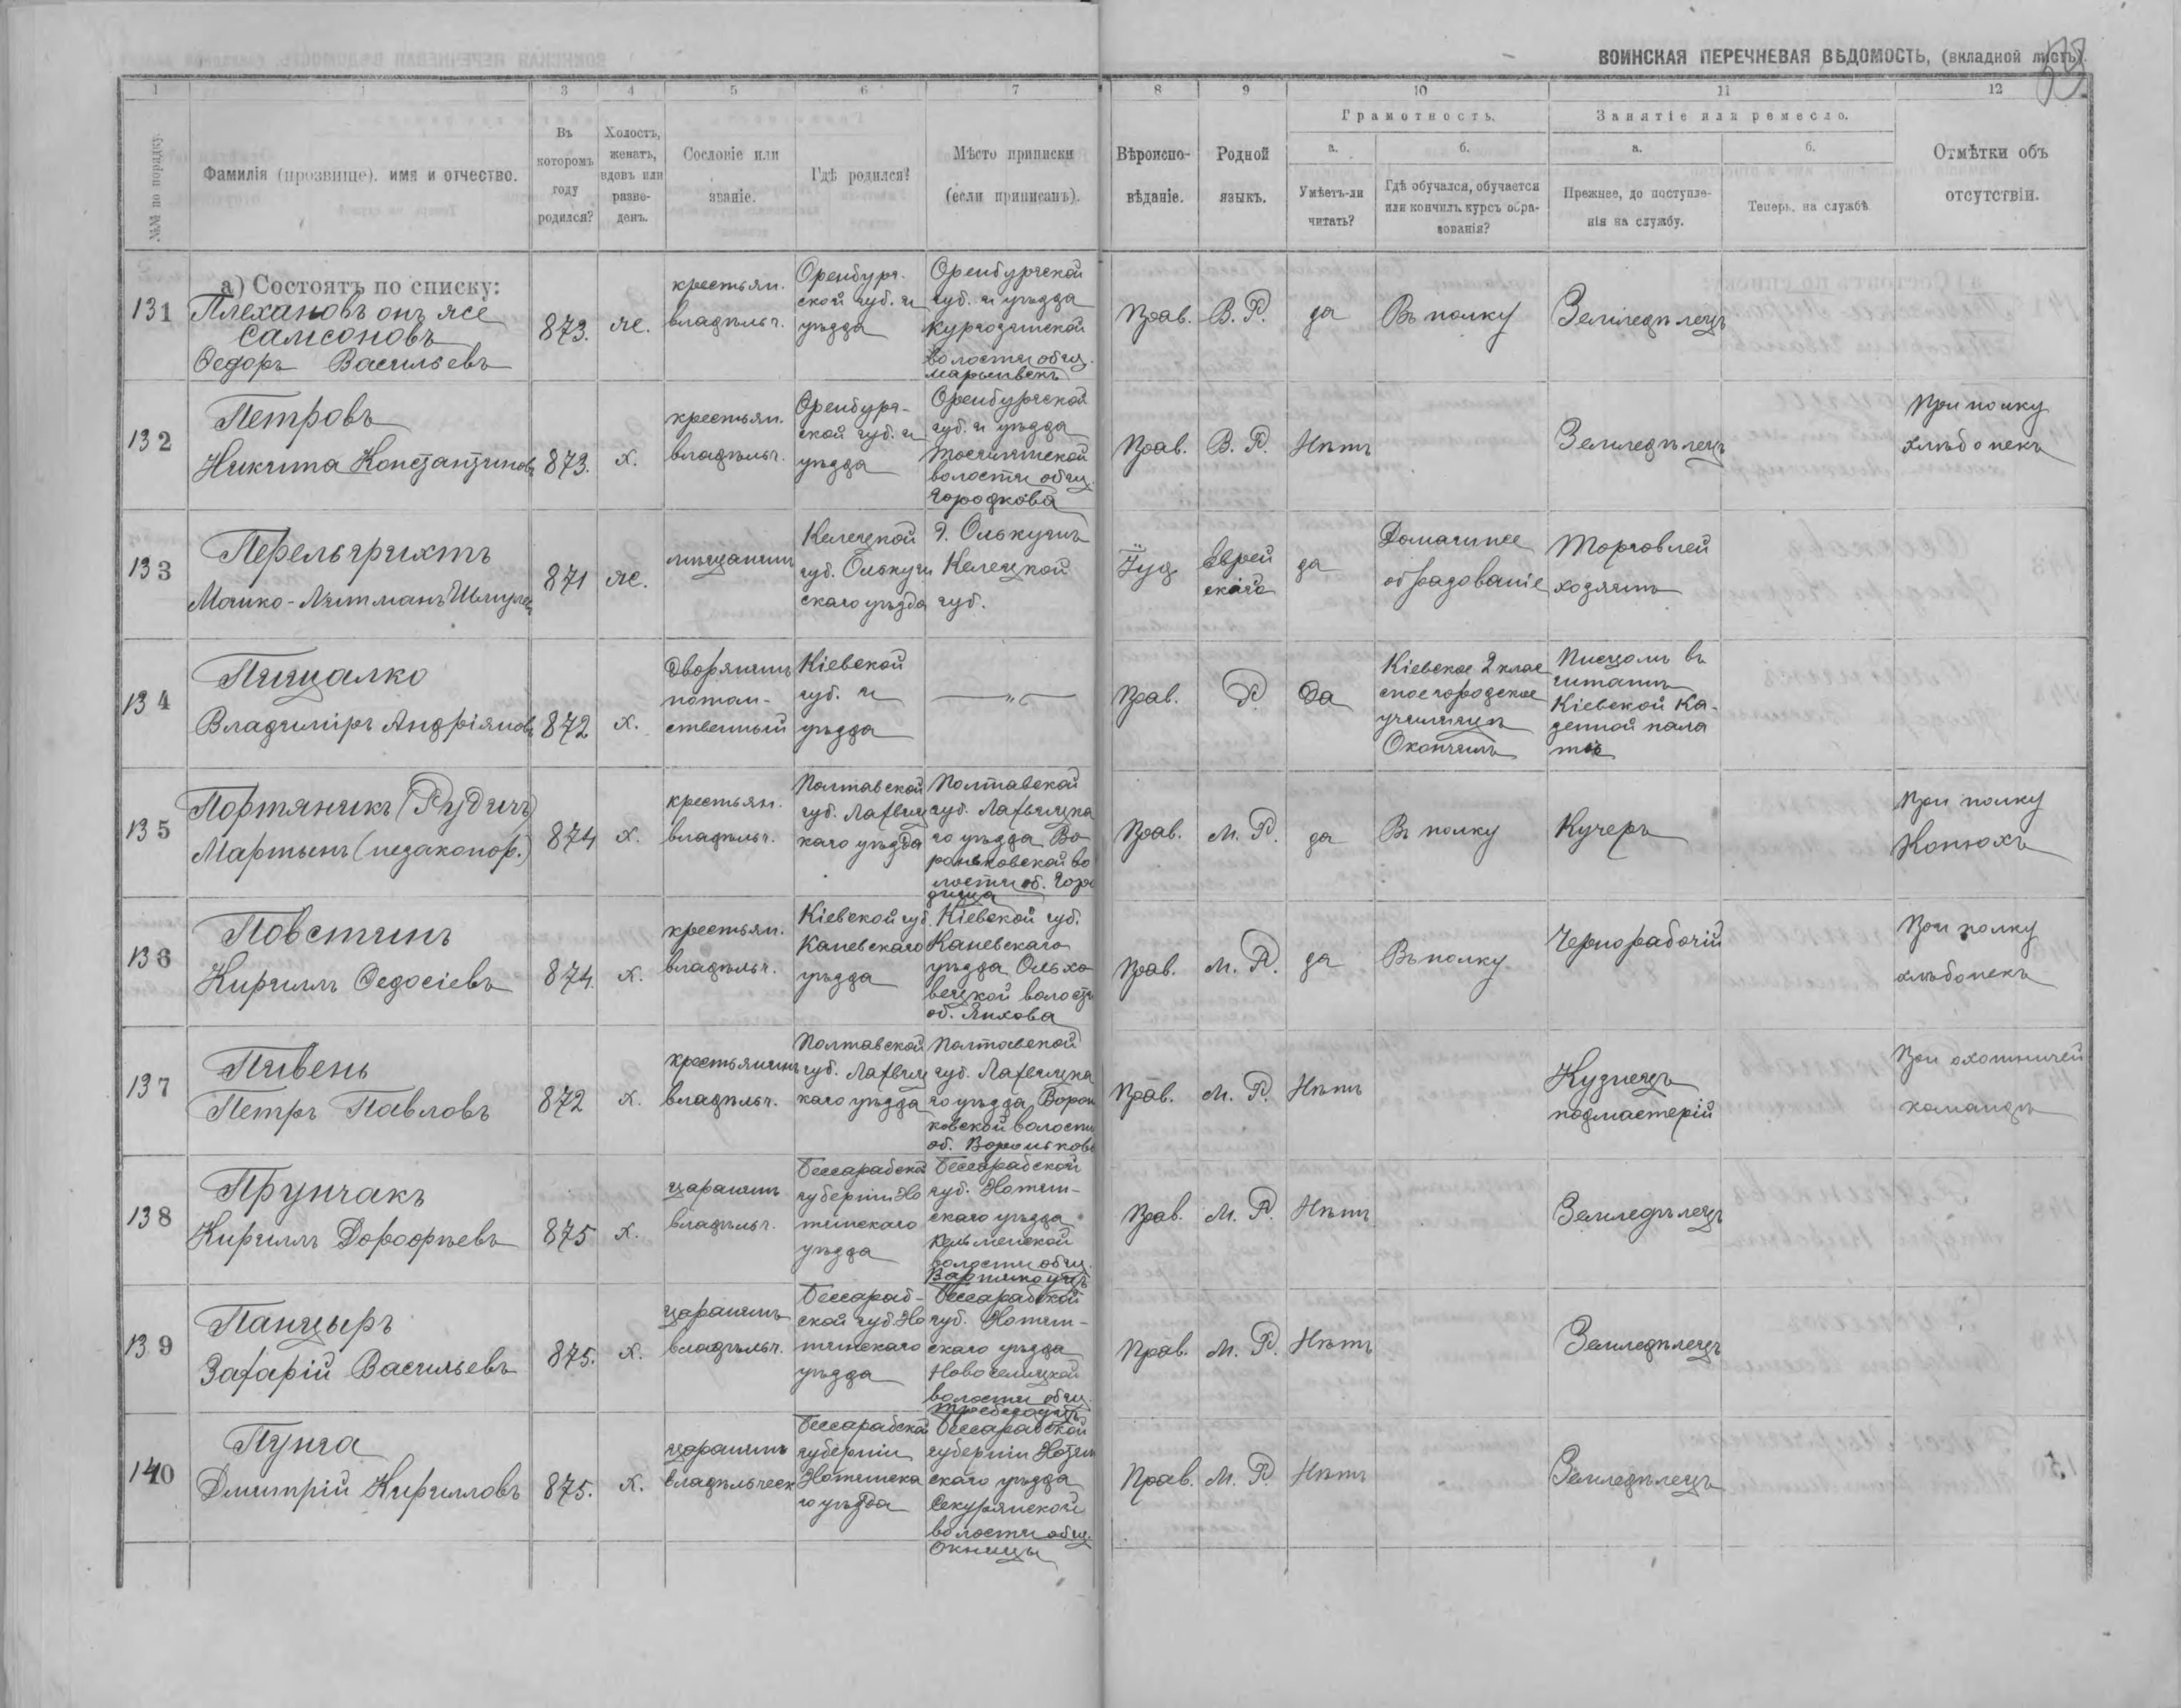 ВОИНСКАЯ ПЕРЕЧНЕВАЯ ВѢДОМОСТЬ, (вкладной листъ).
1 1 3 4 5 6 7 8 9 10 11 12
№№ по порядку.
Фамилія (прозвище), имя и отчество.
Въ которомъ году родился?
Холостъ, женатъ, вдовъ или разведенъ.
Сословіе или званіе.
Гдѣ родился?
Мѣсто приписки (если приписанъ).
Вѣроисповѣданіе.
Родной языкъ.
Грамотность.
а. Умѣетъ-ли читать?
б. Гдѣ обучался, обучается или кончилъ курсъ образованія?
Занятіе или ремесло.
а. Прежнее, до поступленія на службу.
б. Теперь, на службѣ
Отмѣтки объ отсутствіи.
а) Состоятъ по списку:
131 Плехановъ онъ же Самсоновъ Ѳедоръ Васильевъ
873. же.
крестьян. владѣльч.
Оренбургской губ. и уѣзда
Оренбургской губ. и уѣзда волости общ.
Прав. В. Р. да Въ полку Земледѣлецъ
132 Петровъ Никита Константиновъ
873. х.
крестьян. владѣльч.
Оренбургской губ. и уѣзда
Оренбургской губ. и уѣзда волости общ. Городкова
Прав. В. Р. Нѣтъ Земледѣлецъ
При полку хлѣбопекъ
133 Перельгрихтъ
871 же.
мѣщанинъ
Келецкой губ. Олькушскаго уѣзда
Г. Олькушъ Келецкой губ.
Іуд. Еврейскаго да
Домашнее образованіе
Торговлей ходячимъ
134 Пищалко Владиміръ Андріяновъ
872 х.
Дворянинъ потомственный
Кіевской губ. и уѣзда
— „ —
Прав. Р. Да
Кіевское 2 класcное городское училище Окончилъ
Писцомъ въ Кіевской Казенной палатѣ
135 Портяникъ (Рудичъ) Мартынъ (незаконор.)
874 х.
крестьян. владѣльч.
Полтавской губ. Лахвицкаго уѣзда
Полтавской губ. Лахвицкаго уѣзда Вороньковской волости об. Городища
Прав. М. Р. да Въ полку Кучеръ
При полку Конюхъ
136 Повстинъ Кириллъ Ѳедосіевъ
874. х.
крестьян. владѣльч.
Кіевской губ. Каневскаго уѣзда
Кіевской губ. Каневскаго уѣзда Ольховецкой волости об. Янхова
Прав. М. Р. да Въ полку Чернорабочій
При полку хлѣбопекъ
137 Пивень Петръ Павловъ
872 х.
крестьянинъ владѣльч.
Полтавской губ. Лахвицкаго уѣзда
Полтавской губ. Лахвицкаго уѣзда Воронковской волости об. Вороньковъ
Прав. М. Р. Нѣтъ
Кузнецъ подмастерій
При охотничей командѣ
138 Прунчакъ Кириллъ Дорофѣевъ
875 х.
царанинъ владѣльч.
Бессарабской губерніи Хотинскаго уѣзда
Бессарабской губ. Хотинскаго уѣзда Кельменской волости общ.
Прав. М. Р. Нѣтъ Земледѣлецъ
139 Панцыръ Захарій Васильевъ
875. х.
царанинъ владѣльч.
Бессарабской губ. Хотинскаго уѣзда
Бессарабской губ. Хотинскаго уѣзда Новоселицкой волости общ.
Прав. М. Р. Нѣтъ Земледѣлецъ
140 Пунга Дмитрій Кирилловъ
875. х.
царанинъ владѣльческ
Бессарабской губерніи Хотинскаго уѣзда
Бессарабской губерніи Хотинскаго уѣзда Секурянской волости общ. Окницы
Прав. М. Р. Нѣтъ Земледѣлецъ